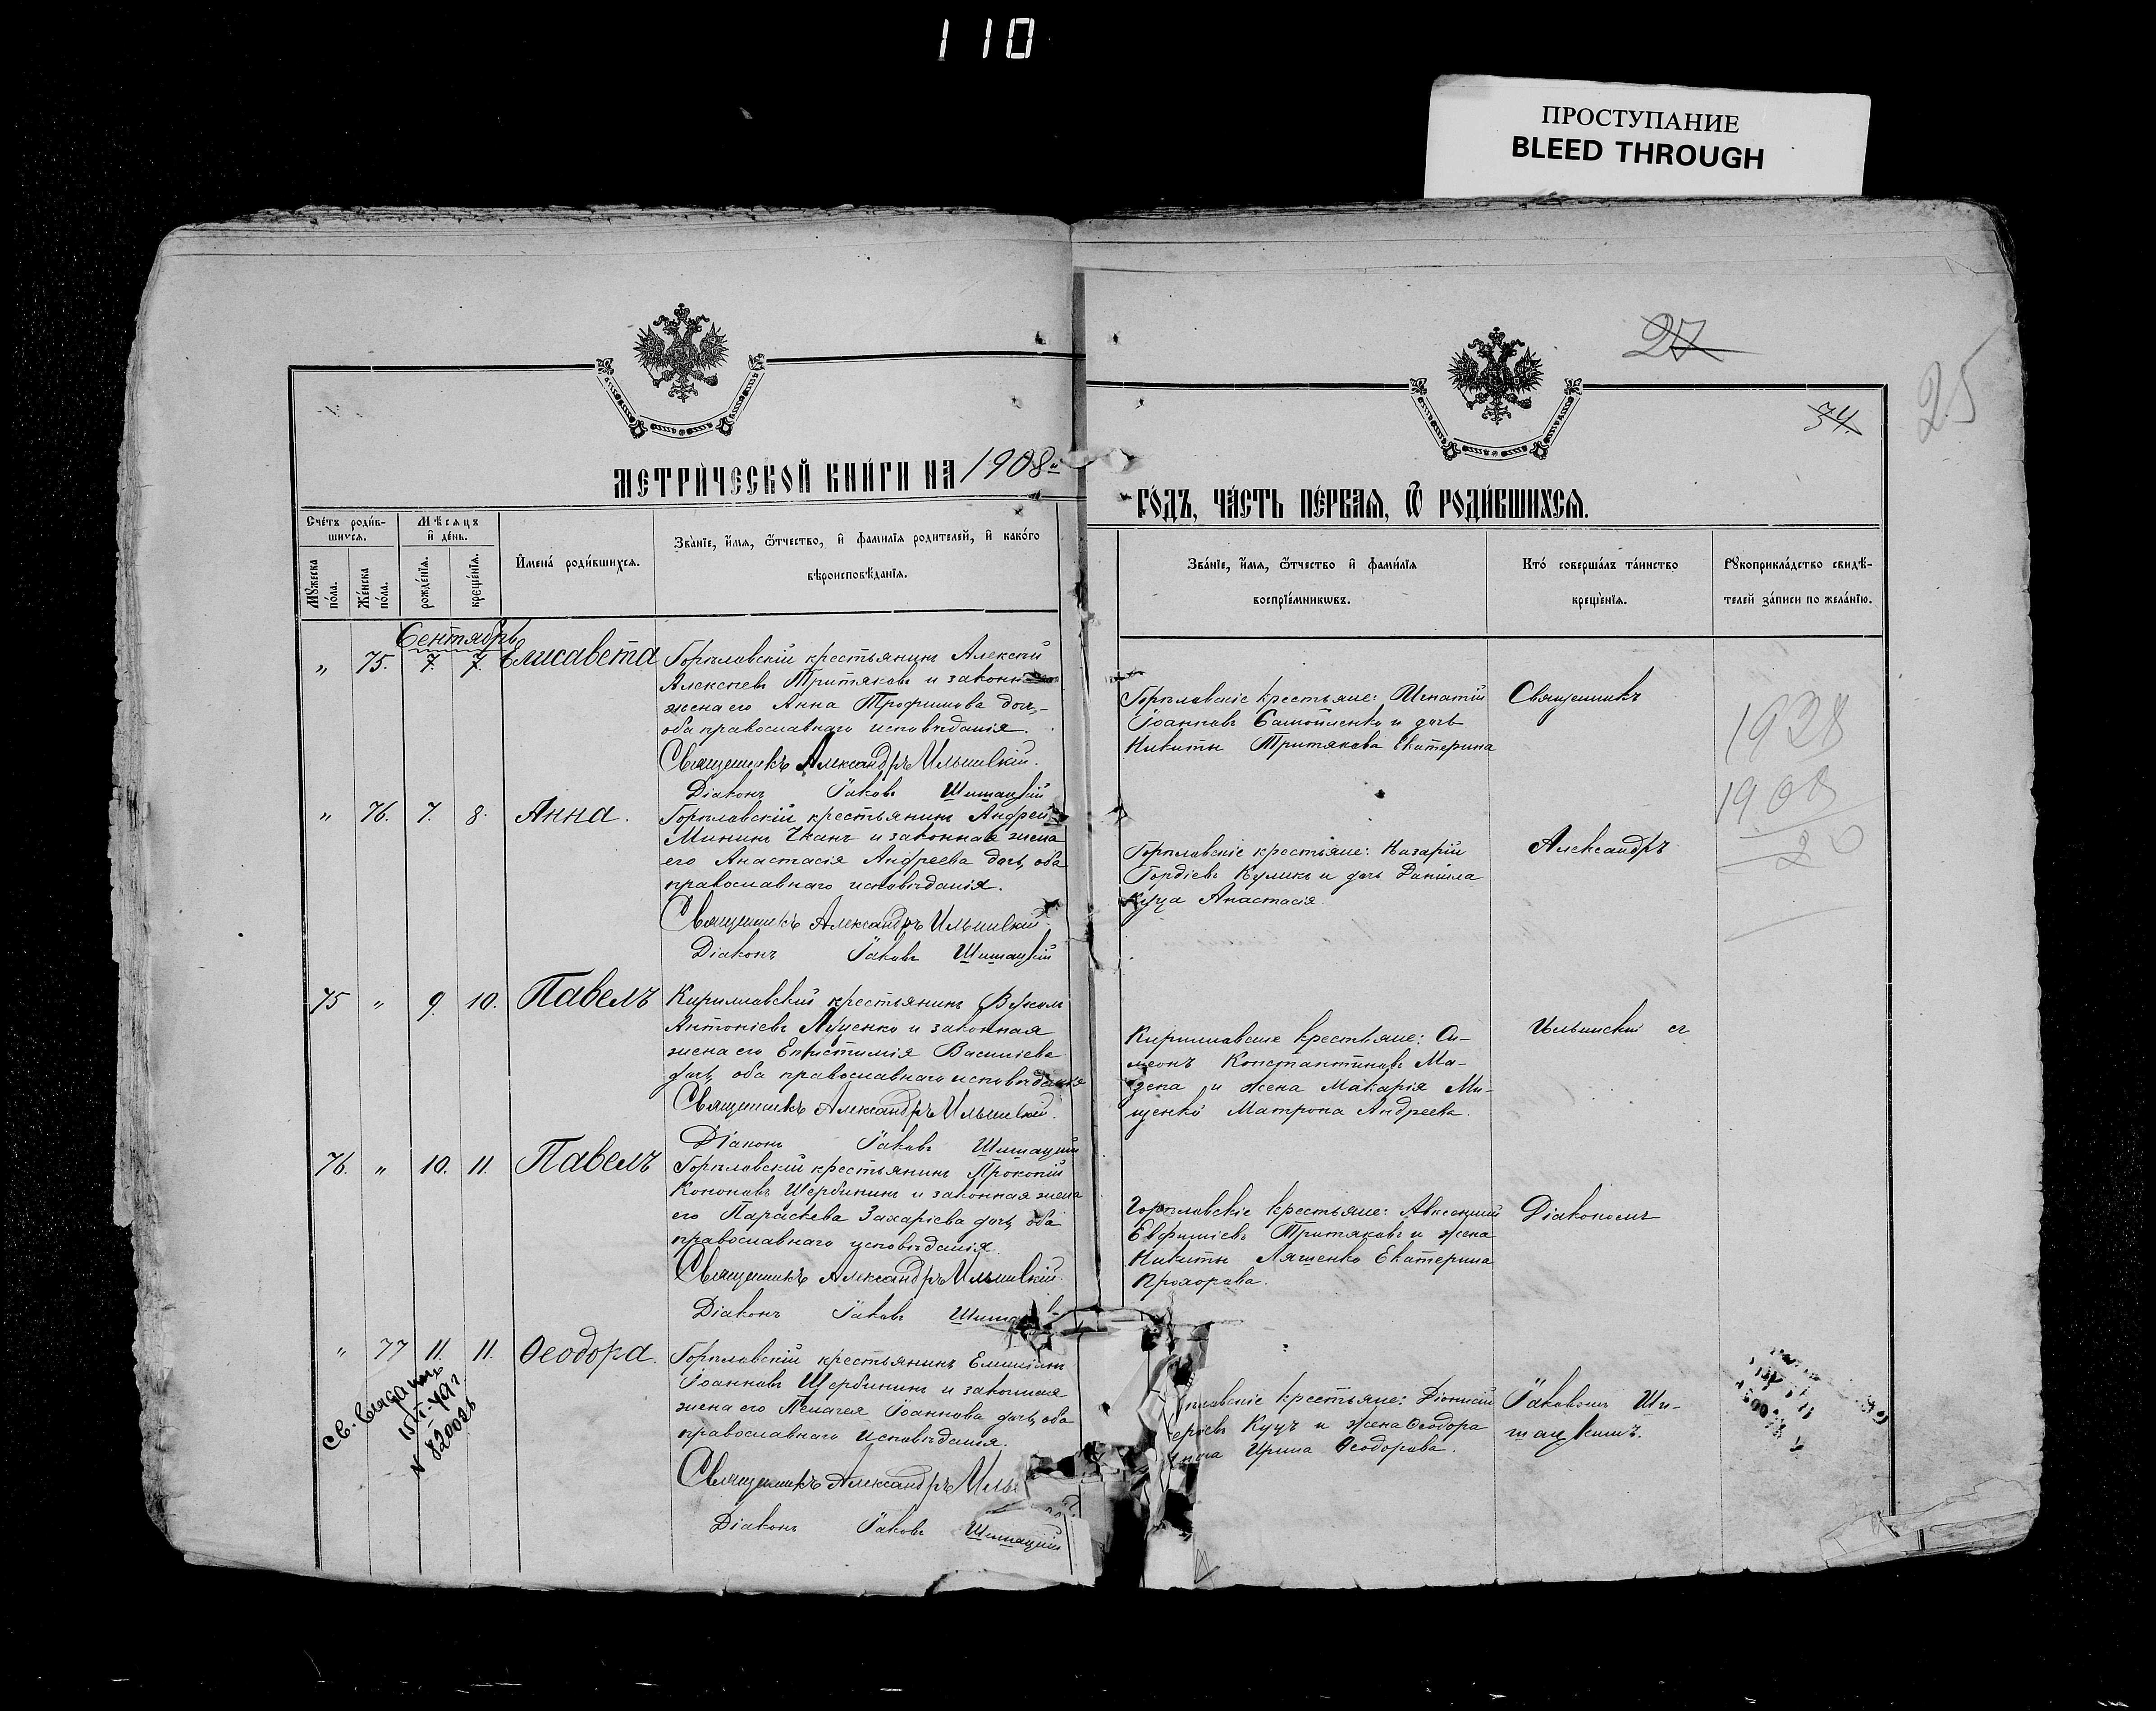 110
ПРОСТУПАНИЕ
BLEED THROUGH
27
34.
25
МЕТРИ́ЧЕСКОЙ КНИ́ГИ НА 1908й
ГО́ДЪ, ЧА́СТЬ ПЕ́РВАѦ, Ѿ РОДИ́ВШИХСѦ.
Сче́тъ роди́в-
шихсѧ.
Мѣ́сѧцъ
и҆ де́нь.
И҆мена́ роди́вшихсѧ.
Зва́нїе, и҆́мѧ, ѻ҆́тчество, и҆ фами́лїѧ роди́телей, и҆ како́гѡ
вѣроисповѣ́данїѧ.
Мꙋ́жеска
по́ла.
Же́нска
по́ла.
рожде́нїѧ.
креще́нїѧ.
Зва́нїе, и҆́мѧ, ѻ҆́тчество и҆ фами́лїѧ
воспрїе́мникѡвъ.
Кто́ соверша́лъ та́инство
креще́нїѧ.
Рꙋкоприкла́дство свидѣ́-
телей за́писи по жела́нїю.
Сентябрь
" 75. 7. 7. Елисавета
Горѣловскій крестьянинъ Алексѣй
Алексѣевъ Притяковъ и законная
жена его Анна Трофимова дочь,
оба православнаго исповѣданія.
Священникъ Александръ Ильинскій.
Діаконъ Іаковъ Шишацкій
Горѣловскіе крестьяне: Игнатій
Іоанновъ Самойленко и дочь
Никиты Притякова Екатерина
Священникъ
1928
1908
20
" 76. 7. 8. Анна.
Горѣловскій крестьянинъ Андрей
Мининъ Чканъ и законная жена
его Анастасія Андреева дочь, оба
православнаго исповѣданія.
Священникъ Александръ Ильинскій.
Діаконъ Іаковъ Шишацкій
Горѣловскіе крестьяне: Назарій
Гордіевъ Куликъ и дочь Даніила
Куца Анастасія.
Александръ
75 " 9. 10. Павелъ
Кирилловскій крестьянинъ Вуколъ
Антоніевъ Луценко и законная
жена его Епистимія Василіева
дочь, оба православнаго исповѣданія
Священникъ Александръ Ильинскій.
Діаконъ Іаковъ Шишацкій
Кирилловскіе крестьяне: Си-
меонъ Константиновъ Ма-
зепа и жена Макарія Ми-
щенко Матрона Андреева.
Ильинскій съ
76. " 10. 11. Павелъ
Горѣловскій крестьянинъ Прокопій
Кононовъ Щербининъ и законная жена
его Параскева Захаріева дочь, оба
православнаго исповѣданія.
Священникъ Александръ Ильинскій.
Діаконъ Іаковъ
Горѣловскіе крестьяне: Авксентій
Евфиміевъ Притяковъ и жена
Никиты Ляшенко Екатерина
Прохорова.
Діакономъ
" 77 11. 11. Ѳеодора.
Горѣловскій крестьянинъ Емиліанъ
Іоанновъ Щербининъ и законная
жена его Пелагея Іоаннова дочь, оба
православнаго исповѣданія.
Священникъ Александръ
Діаконъ Іаковъ Шишацкій
крестьяне: Діонисій
Куцъ и жена Ѳеодора
Ирина Ѳеодорова.
Іаковомъ Ши-
шацкимъ.
Св.
№ 82002б